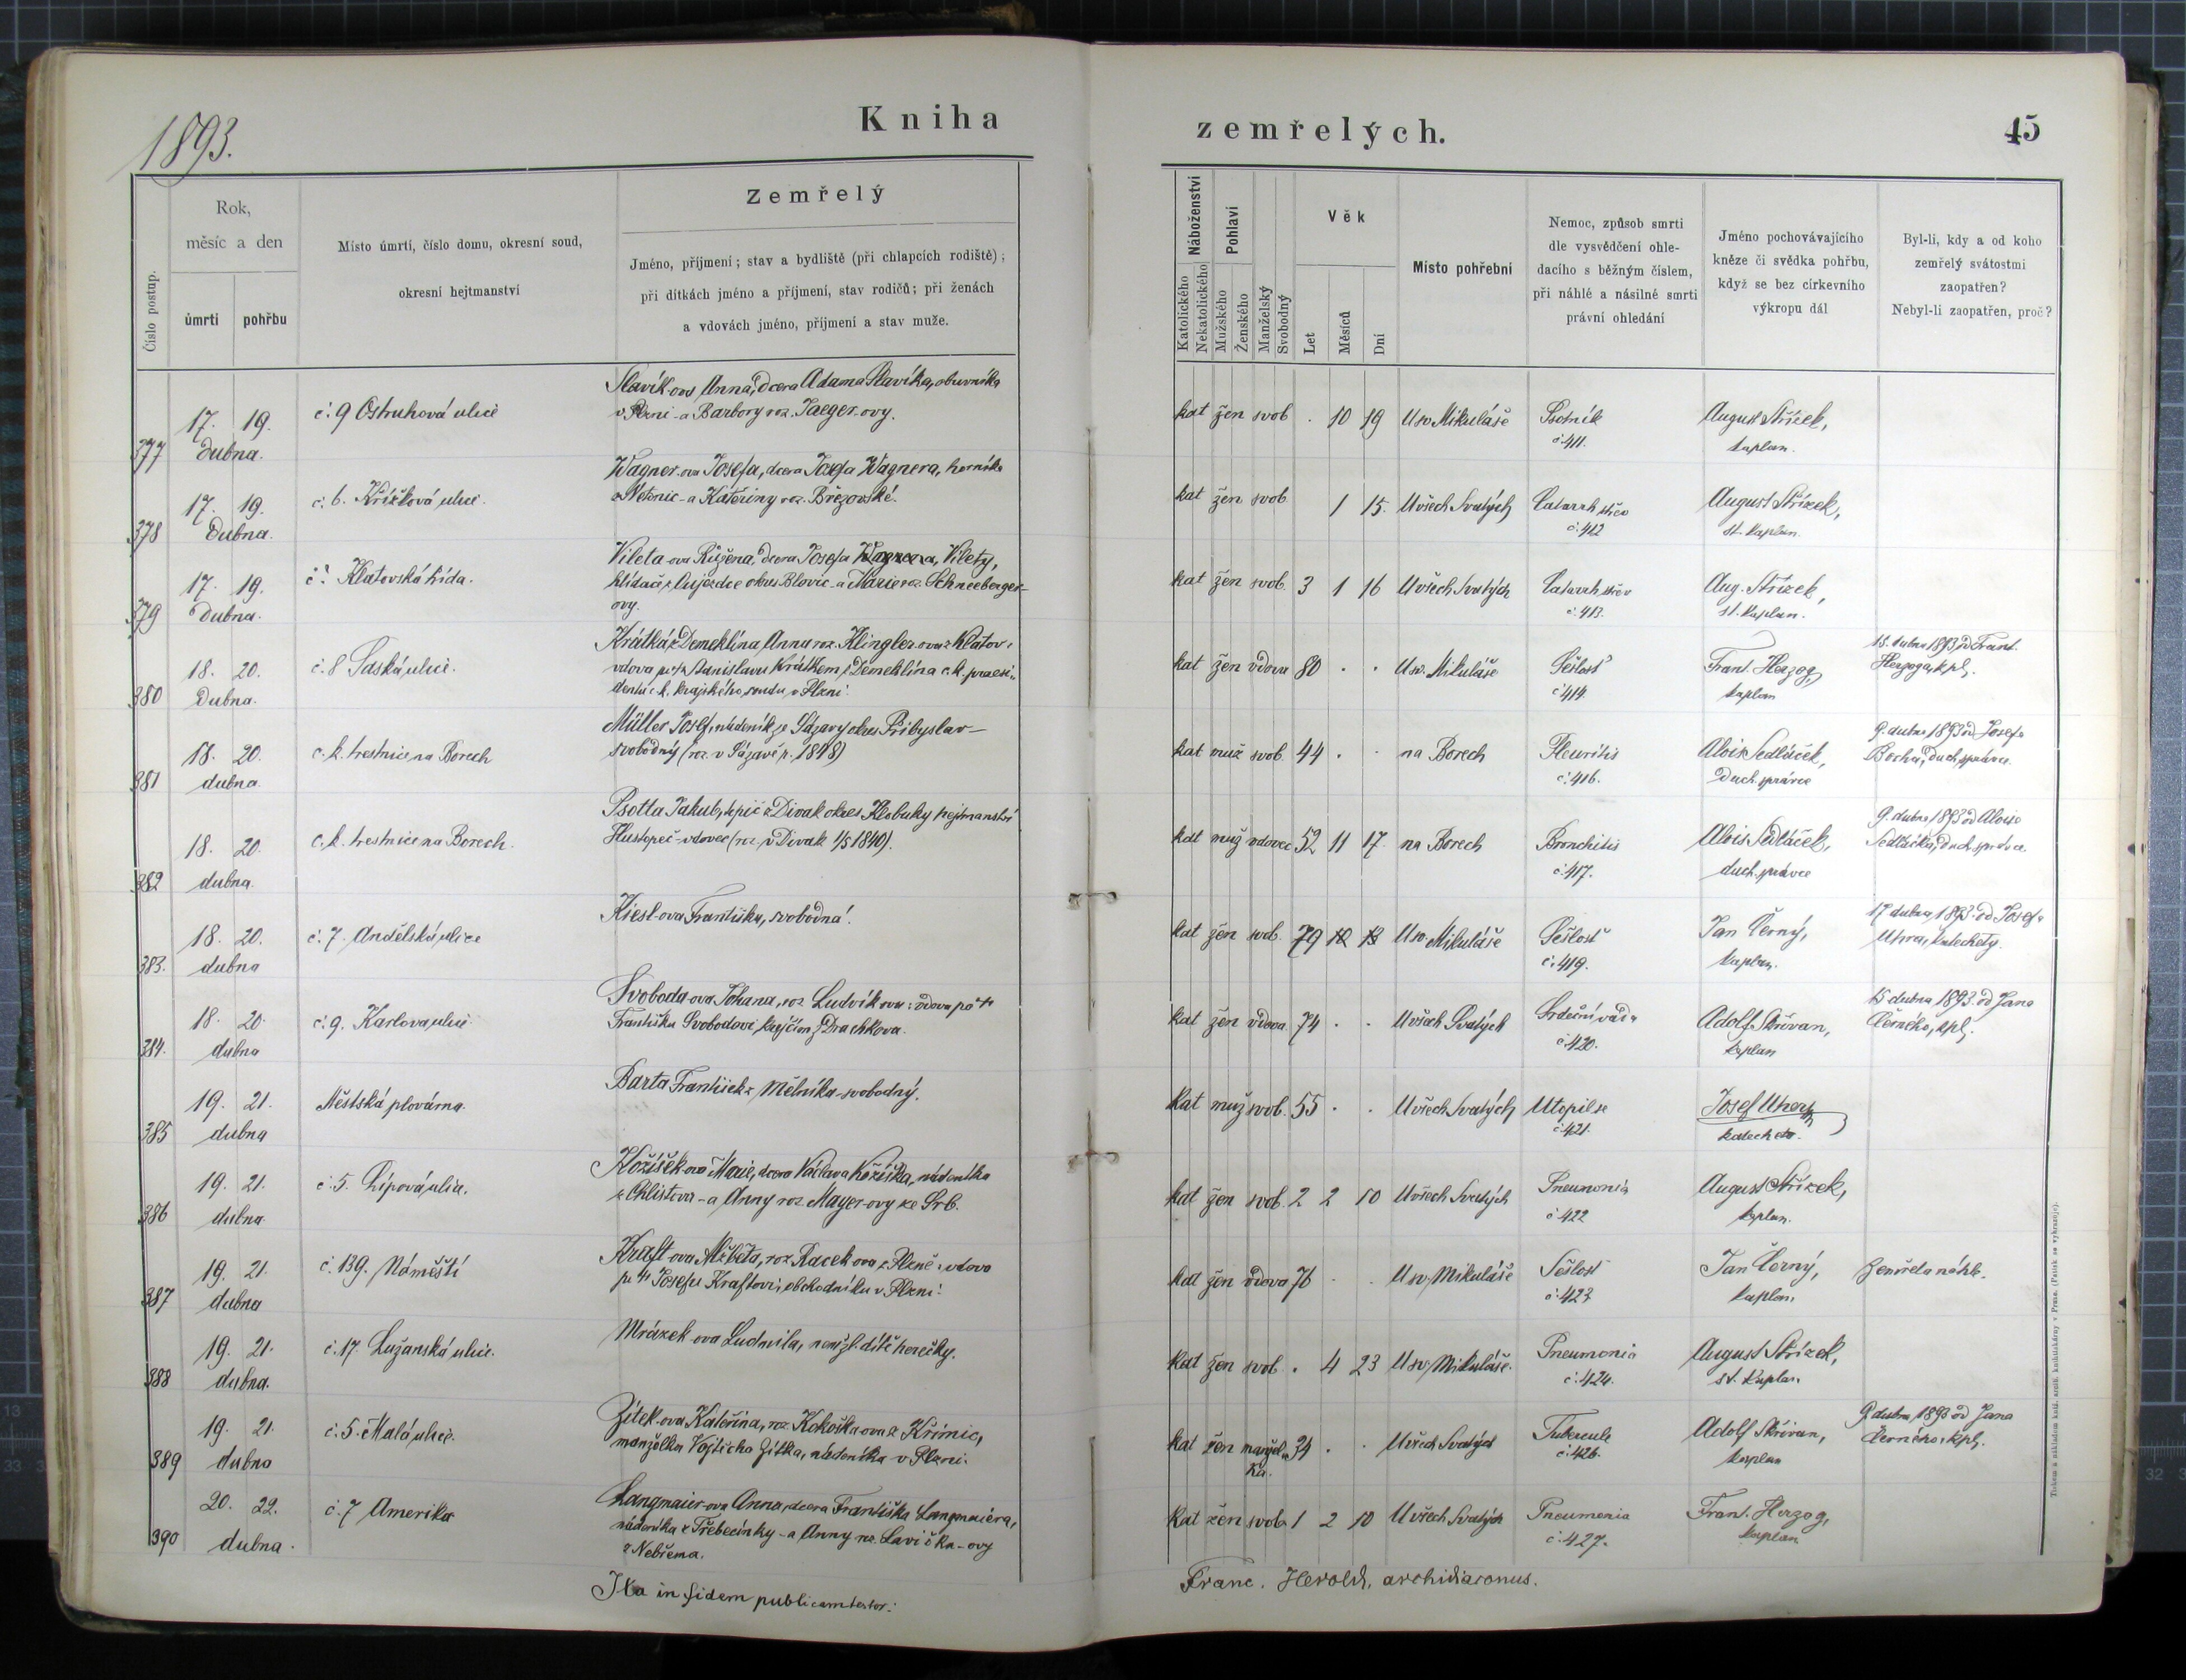 1893.
Kniha zemřelých.
45
Číslo postup.
Rok, měsíc a den
úmrtí
pohřbu
Místo úmrtí, číslo domu, okresní soud,
okresní hejtmanství
Zemřelý
Jméno, příjmení; stav a bydliště (při chlapcích rodiště);
při dítkách jméno a příjmení, stav rodičů; při ženách
a vdovách jméno, příjmení a stav muže.
Náboženství
Katolického
Nekatolického
Pohlaví
Mužského
Ženského
Manželský
Svobodný
Věk
Let
Měsíců
Dní
Místo pohřební
Nemoc, způsob smrti
dle vysvědčení ohle-
dacího s běžným číslem,
při náhlé a násilné smrti
právní ohledání
Jméno pochovávajícího
kněze či svědka pohřbu,
když se bez církevního
výkropu dál
Byl-li, kdy a od koho
zemřelý svátostmi
zaopatřen?
Nebyl-li zaopatřen, proč?
377 17. 19. dubna. č. 9 Ostruhová ulice
Slavík-ova Anna, dcera Adama Slavíka, obuvníka
v Plzni - a Barbory roz. Jaeger-ovy.
kat žen svob . 10 19 U sv. Mikuláše Psotník č. 411. August Střízek, kaplan.
378 17. 19. Dubna. č. 6. Křížková ulice.
Wagner-ova Josefa, dcera Josefa Wagnera, horníka
z Netonic - a Kateřiny roz. Březovské.
kat žen svob 1 15. U všech Svatých Catarrh střev č. 412 August Střízek, st. kaplan.
379 17. 19. Dubna. č. Klatovská třída.
Vileta-ova Růžena, dcera Josefa Wagnera, Vilety,
hlídače z Aujezdce okres Blovic - a Marie roz. Schneeberger-
ovy.
kat žen svob. 3 1 16 U všech Svatých Catarrh střev č. 413. Aug. Střízek, st. kaplan.
380 18. 20. Dubna. č. 8 Saská ulice.
Krátká z Demeklína Anna roz. Klingler-ova z Klatov,
vdova po † Stanislavu Krátkém z Demeklína c. k. praesi-
dentu c. k. krajského soudu v Plzni.
kat žen vdova 80 . . U sv. Mikuláše Sešlosť č. 414. Frant. Herzog, kaplan
15. dubna 1893 od Frant.
Herzoga, kpl.
381 18. 20. dubna. c. k. trestnice na Borech
Müller Josef, nádeník ze Sázavy okres Přibyslav -
svobodný (roz. v Sázavě r. 1848)
kat muž svob. 44 . . na Borech Pleuritis č. 416. Alois Sedláček, duch. správce
9. dubna 1893 od Josefa
Bocha, duch. správce.
382 18. 20. dubna. c. k. trestnice na Borech.
Psotta Jakub, kpič z Divak okres Klobuky hejtmanství
Hustopeč - vdovec (roz. v Divak 1/5 1840).
kat muž vdovec 52 11 17. na Borech Bronchitis č. 417. Alois Sedláček, duch. správce
9. dubna 1893 od Aloise
Sedláčka, duch. správce.
383. 18. 20. dubna č. 7. Andělská ulice
Kiesl-ova Františka, svobodná.
kat žen svob. 79 10 13 U sv. Mikuláše Sešlosť č. 419. Jan Černý, kaplan.
17 dubna 1893. od Josefa
Uhra, katechety.
384. 18. 20. dubna č. 9. Karlova ulice.
Svoboda-ova Johana, roz. Ludvík-ova: vdova po †
Františku Svobodovi, krejčím z Drachkova.
kat žen vdova 74 . . U všech Svatých Srdeční vada č. 420. Adolf Skřivan, kaplan
15 dubna 1893. od Jana
Černého, kpl.
385 19. 21. dubna Městská plovárna.
Barta František z Mělníka - svobodný.
kat muž svob. 55 . . U všech Svatých Utopil se č. 421. Josef Uher, katecheta.
386 19. 21. dubna. č. 5. Lipová ulice.
Kožíšek-ova Marie, dcera Václava Kožíška, nádeníka
z Chlistova - a Anny roz. Mayer-ovy ze Srb.
kat žen svob. 2 2 10 U všech Svatých Pneumonia č. 422 August Střízek, kaplan.
387 19. 21. dubna č. 139. Náměstí
Kraft-ova Alžběta, roz. Racek-ova z Plzně: vdova
po † Josefu Kraftovi, obchodníku v Plzni.
kat žen vdova 76 . . U sv. Mikuláše Sešlosť č. 423 Jan Černý, kaplan.
Zemřela náhle.
388 19. 21. dubna. č. 17. Lužanská ulice.
Mrázek-ova Ludmila, manžel. dítě herečky.
kat žen svob. . 4 23 U sv. Mikuláše. Pneumonia č. 424. August Střízek, st. kaplan.
389 19. 21. dubna č. 5. Malá ulice.
Zítek-ova Kateřina, roz. Kokoška-ova z Křimic,
manželka Vojtěcha Zítka, nádeníka v Plzni.
kat žen manžel-ka. 34 . . U všech Svatých Tubercule č. 426. Adolf Skřivan, kaplan
9. dubna 1893 od Jana
Černého, kpl.
390 20. 22. dubna. č. 7 Amerika
Langmaier-ova Anna, dcera Františka Langmaiera,
nádeníka z Třebecinky - a Anny roz. Lavička-ovy
z Nebřema.
kat žen svob. 1 2 10 U všech Svatých Pneumonia č. 427. Frant. Herzog, kaplan
Ita in fidem publicam testor:
Franc. Herold, archidiaconus.